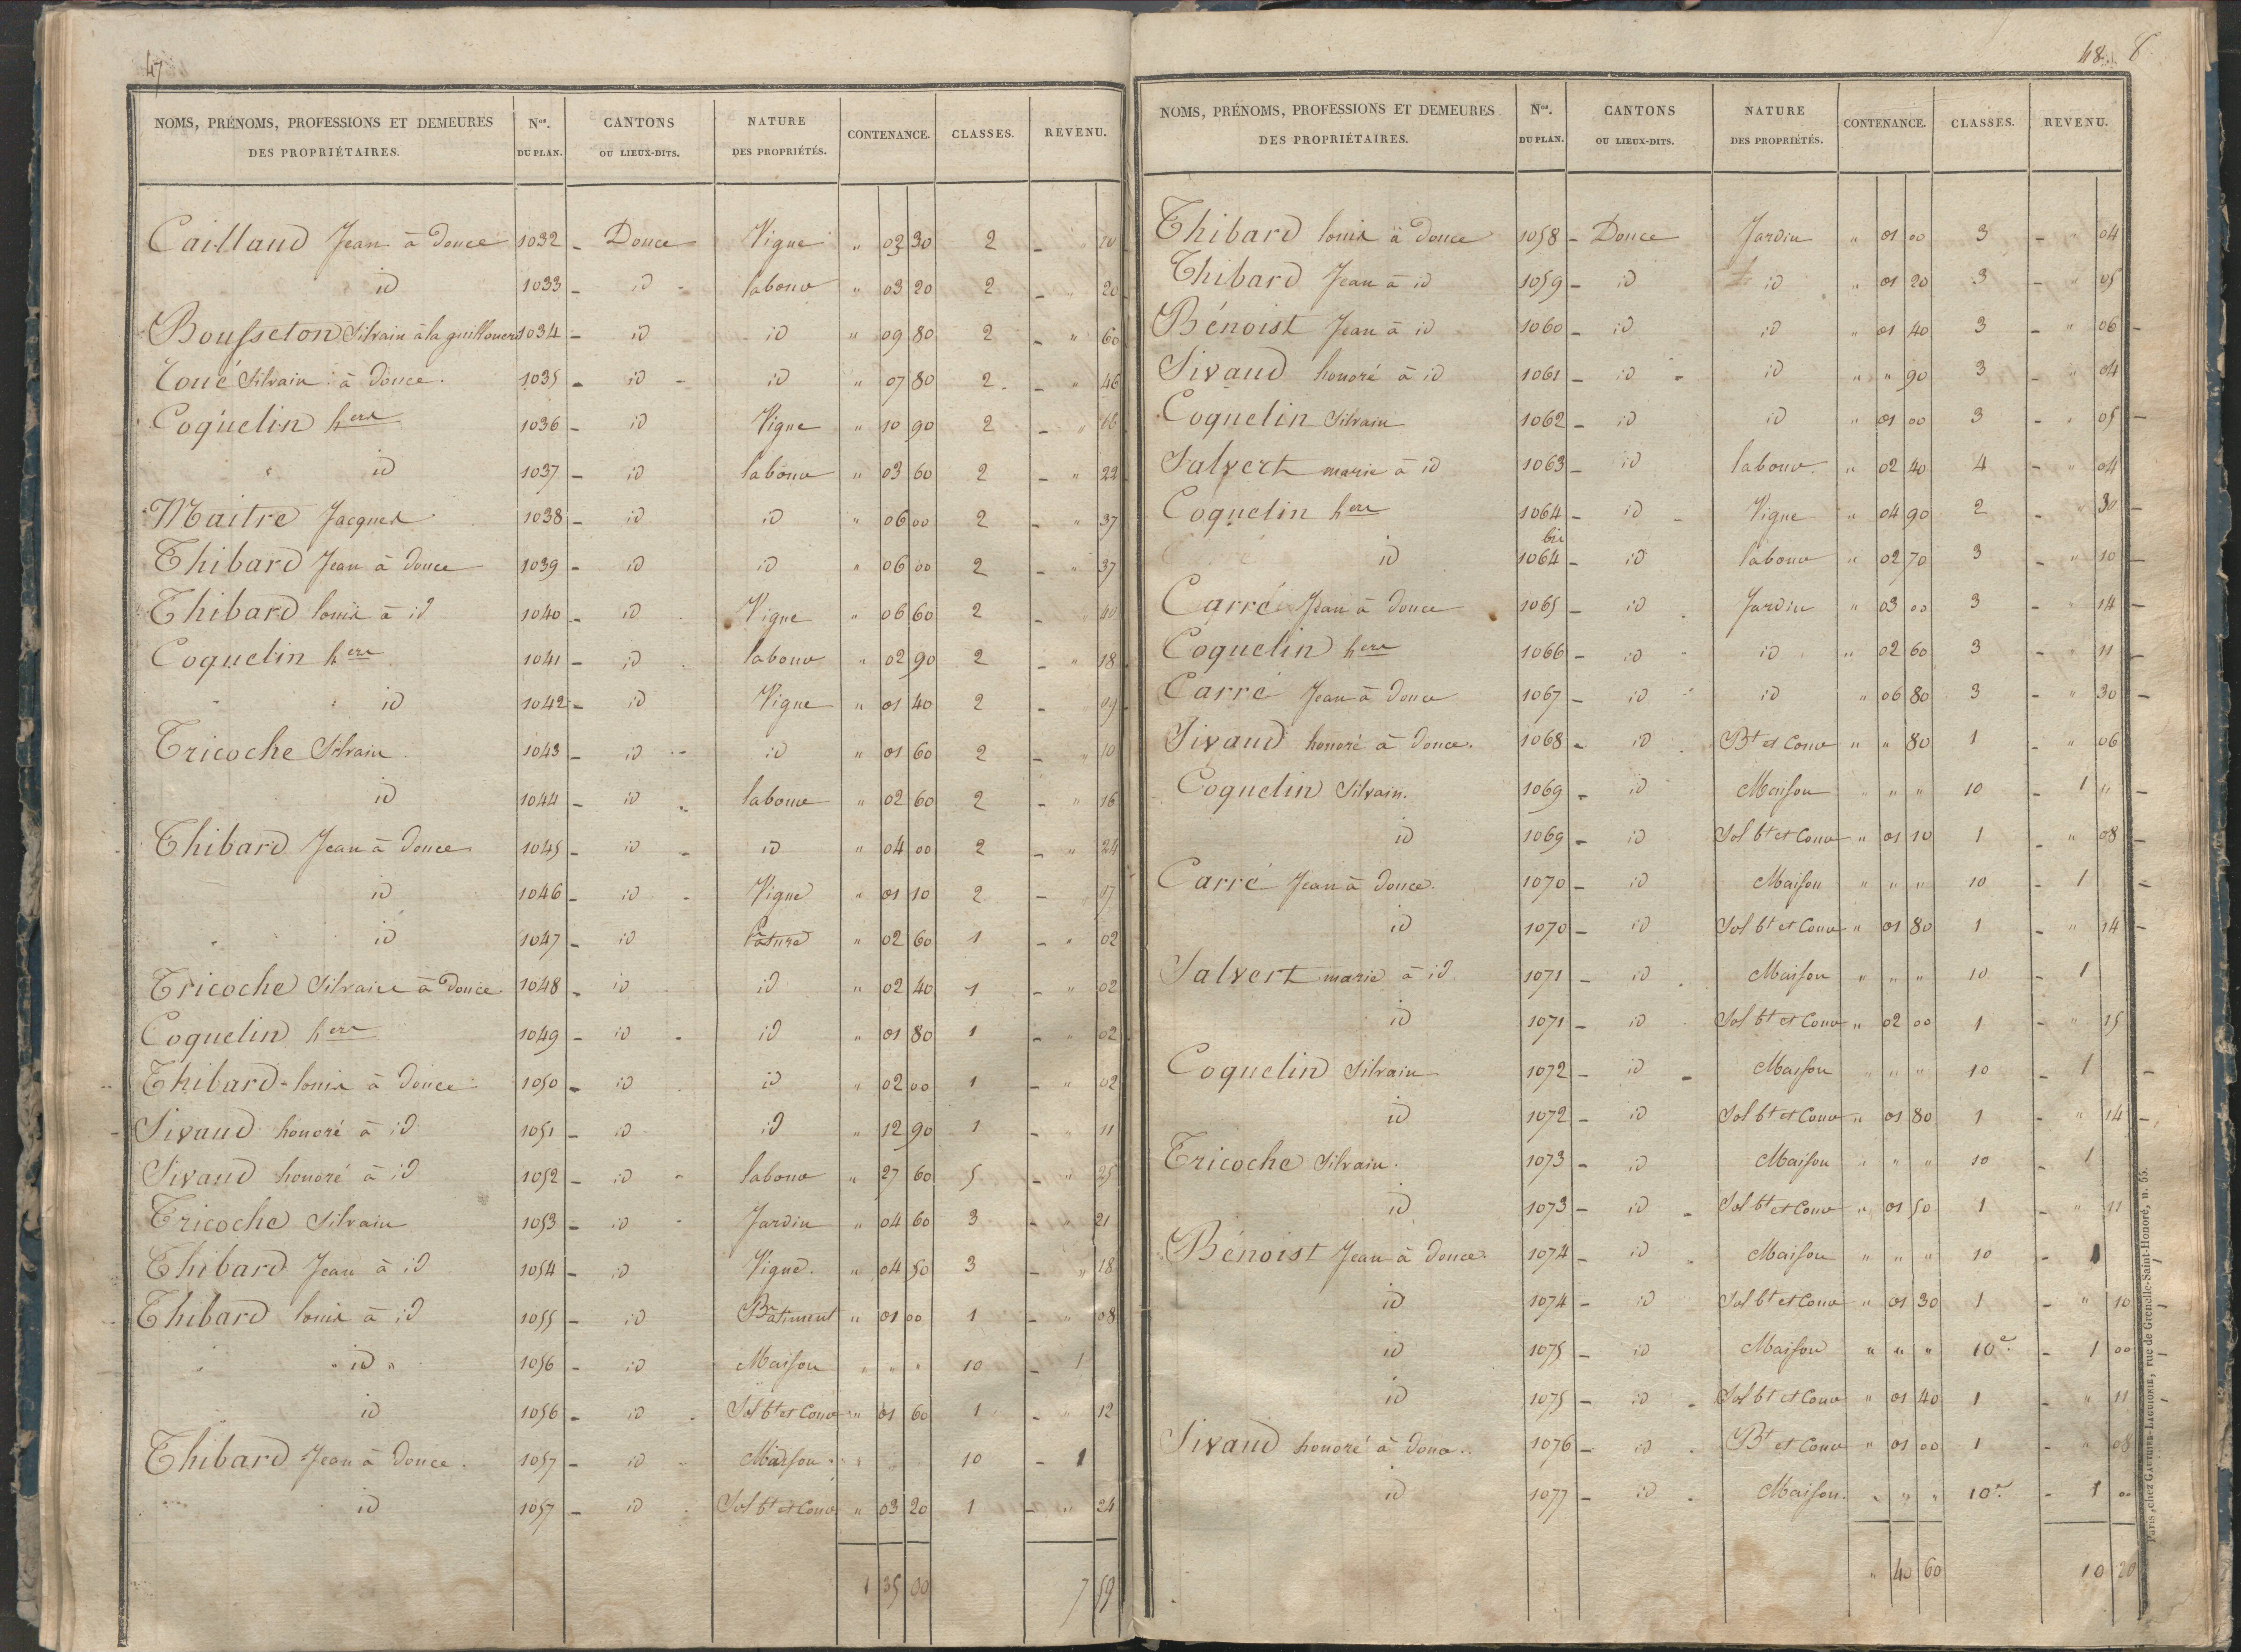 47
NOMS, PRÉNOMS, PROFESSIONS ET DEMEURES DES PROPRIÉTAIRES. Nos. DU PLAN. CANTONS OU LIEUX-DITS. NATURE DES PROPRIÉTÉS. CONTENANCE. CLASSES. REVENU.
Caillaud Jean à Douce 1032 - Douce Vigne " 03 30 2 -
id 1033 - id - labour " 03 20 2 - " 20
Bousseton Silvain à la 1034 - id id " 09 80 2 - " 60
Toué Silvain à Douce. 1035 - id - id " 07 80 2. - " 46
Coquelin hers 1036 - id Vigne " 10 90 2 - "
id 1037 - id labour " 03 60 2 - " 22
Maitre Jacques 1038 - id id " 06 00 2 - " 37
Thibard Jean à Douce 1039 - id id " 06 00 2 - " 37
Thibard louis à id 1040 - id Vigne " 06 60 2 - 40
Coquelin hers 1041 - id labour " 02 90 2 - " 18
id 1042 - id Vigne " 01 40 2 - 09
Tricoche Silvain 1043 - id - id " 01 60 2 - " 10
id 1044 - id labour " 02 60 2 - " 16
Thibard Jean à Douce 1045 - id - id " 04 00 2 - " 24
id 1046 - id - Vigne " 01 10 2 - 07
id 1047 - id Pature " 02 60 1 - " 02
Tricoche Silvain à Douce. 1048 - id id " 02 40 1 - " 02
Coquelin hers 1049 - id - id " 01 80 1 - " 02
Thibard louis à Douce 1050 - id id " 02 00 1 - " 02
Sivaud honoré à id 1051 - id id " 12 90 1 - 11
Sivaud honoré à id 1052 - id - labour " 27 60 5 - " 25
Tricoche Silvain 1053 - id - Jardin " 04 60 3 - " 21
Thibard Jean à id 1054 - id Vigne. " 04 50 3 - " 18
Thibard louis à id 1055 - id Bâtiment " 01 00 1 - " 08
" id " 1056 - id Maison " " " 10 - 1
id 1056 - id - Sol bt et Cour " 01 60 1 - " 12
Thibard Jean à Douce. 1057 - id - Maison 10 - 1
id 1057 - id - Sol bt et Cour " 03 20 1 - " 24
1 35 00 7 59
48. 8
NOMS, PRÉNOMS, PROFESSIONS ET DEMEURES DES PROPRIÉTAIRES. Nos. DU PLAN. CANTONS OU LIEUX-DITS. NATURE DES PROPRIÉTÉS. CONTENANCE. CLASSES. REVENU.
Thibard louis à Douce 1058 - Douce Jardin " 01 00 3 - " 04
Thibard Jean à id 1059 - id id " 01 20 3 - " 05
Bénoist Jean à id 1060 - id id " 01 40 3 - " 06 -
Sivaud honoré à id 1061 - id - id " " 90 3 - " 04
Coquelin Silvain 1062 - id id " 01 00 3 - " 05 -
Salvert marie à id 1063 - id labour. " 02 40 4 - " 04
Coquelin hers 1064 - id - Vigne " 04 90 2 - " 30 -
id 1064 bis - id labour " 02 70 3 - " 10 -
Carré Jean à Douce 1065 - id Jardin " 03 00 3 - " 14 -
Coquelin hers 1066 - id - id " 02 60 3 - " 11 -
Carré Jean à Douce 1067 - id - id " 06 80 3 - " 30 -
Sivaud honoré à Douce. 1068 - id Bt et Cour " " 80 1 - " 06
Coquelin Silvain. 1069 - id Maison " " " 10 - 1 " -
id 1069 - id Sol bt et Cour " 01 10 1 - " 08 -
Carré Jean à Douce. 1070 - id Maison " " " 10 - 1 -
id 1070 - id Sol bt et Cour " 01 80 1 - " 14 -
Salvert marie à id 1071 - id Maison " " " 10 - 1
id 1071 - id Sol bt et Cour " 02 00 1 - " 15
Coquelin Silvain 1072 - id - Maison " " " 10 - 1 -
id 1072 - id Sol bt et Cour " 01 80 1 - " 14 -
Tricoche Silvain. 1073 - id Maison " " " 10 - 1
id 1073 - id - Sol bt et Cour " 01 50 1 - " 11
Bénoist Jean à Douce 1074 - id Maison " " " 10 - 1 -
id 1074 - id Sol bt et Cour " 01 30 1 - " 10 -
id 1075 - id Maison " " " 10e. - 1 00 -
id 1075 - id - Sol bt et Cour " 01 40 1 - " 11 -
Sivaud honoré à Douce.. 1076 - id - Bt et Cour " 01 00 1 - " 08
id 1077 - id - Maison. " " " 10e. - 1 00
" 40 60 10 20
Paris, chez GAUTHIER-LAGUIONIE, rue de Grenelle-Saint-Honoré, n. 55.